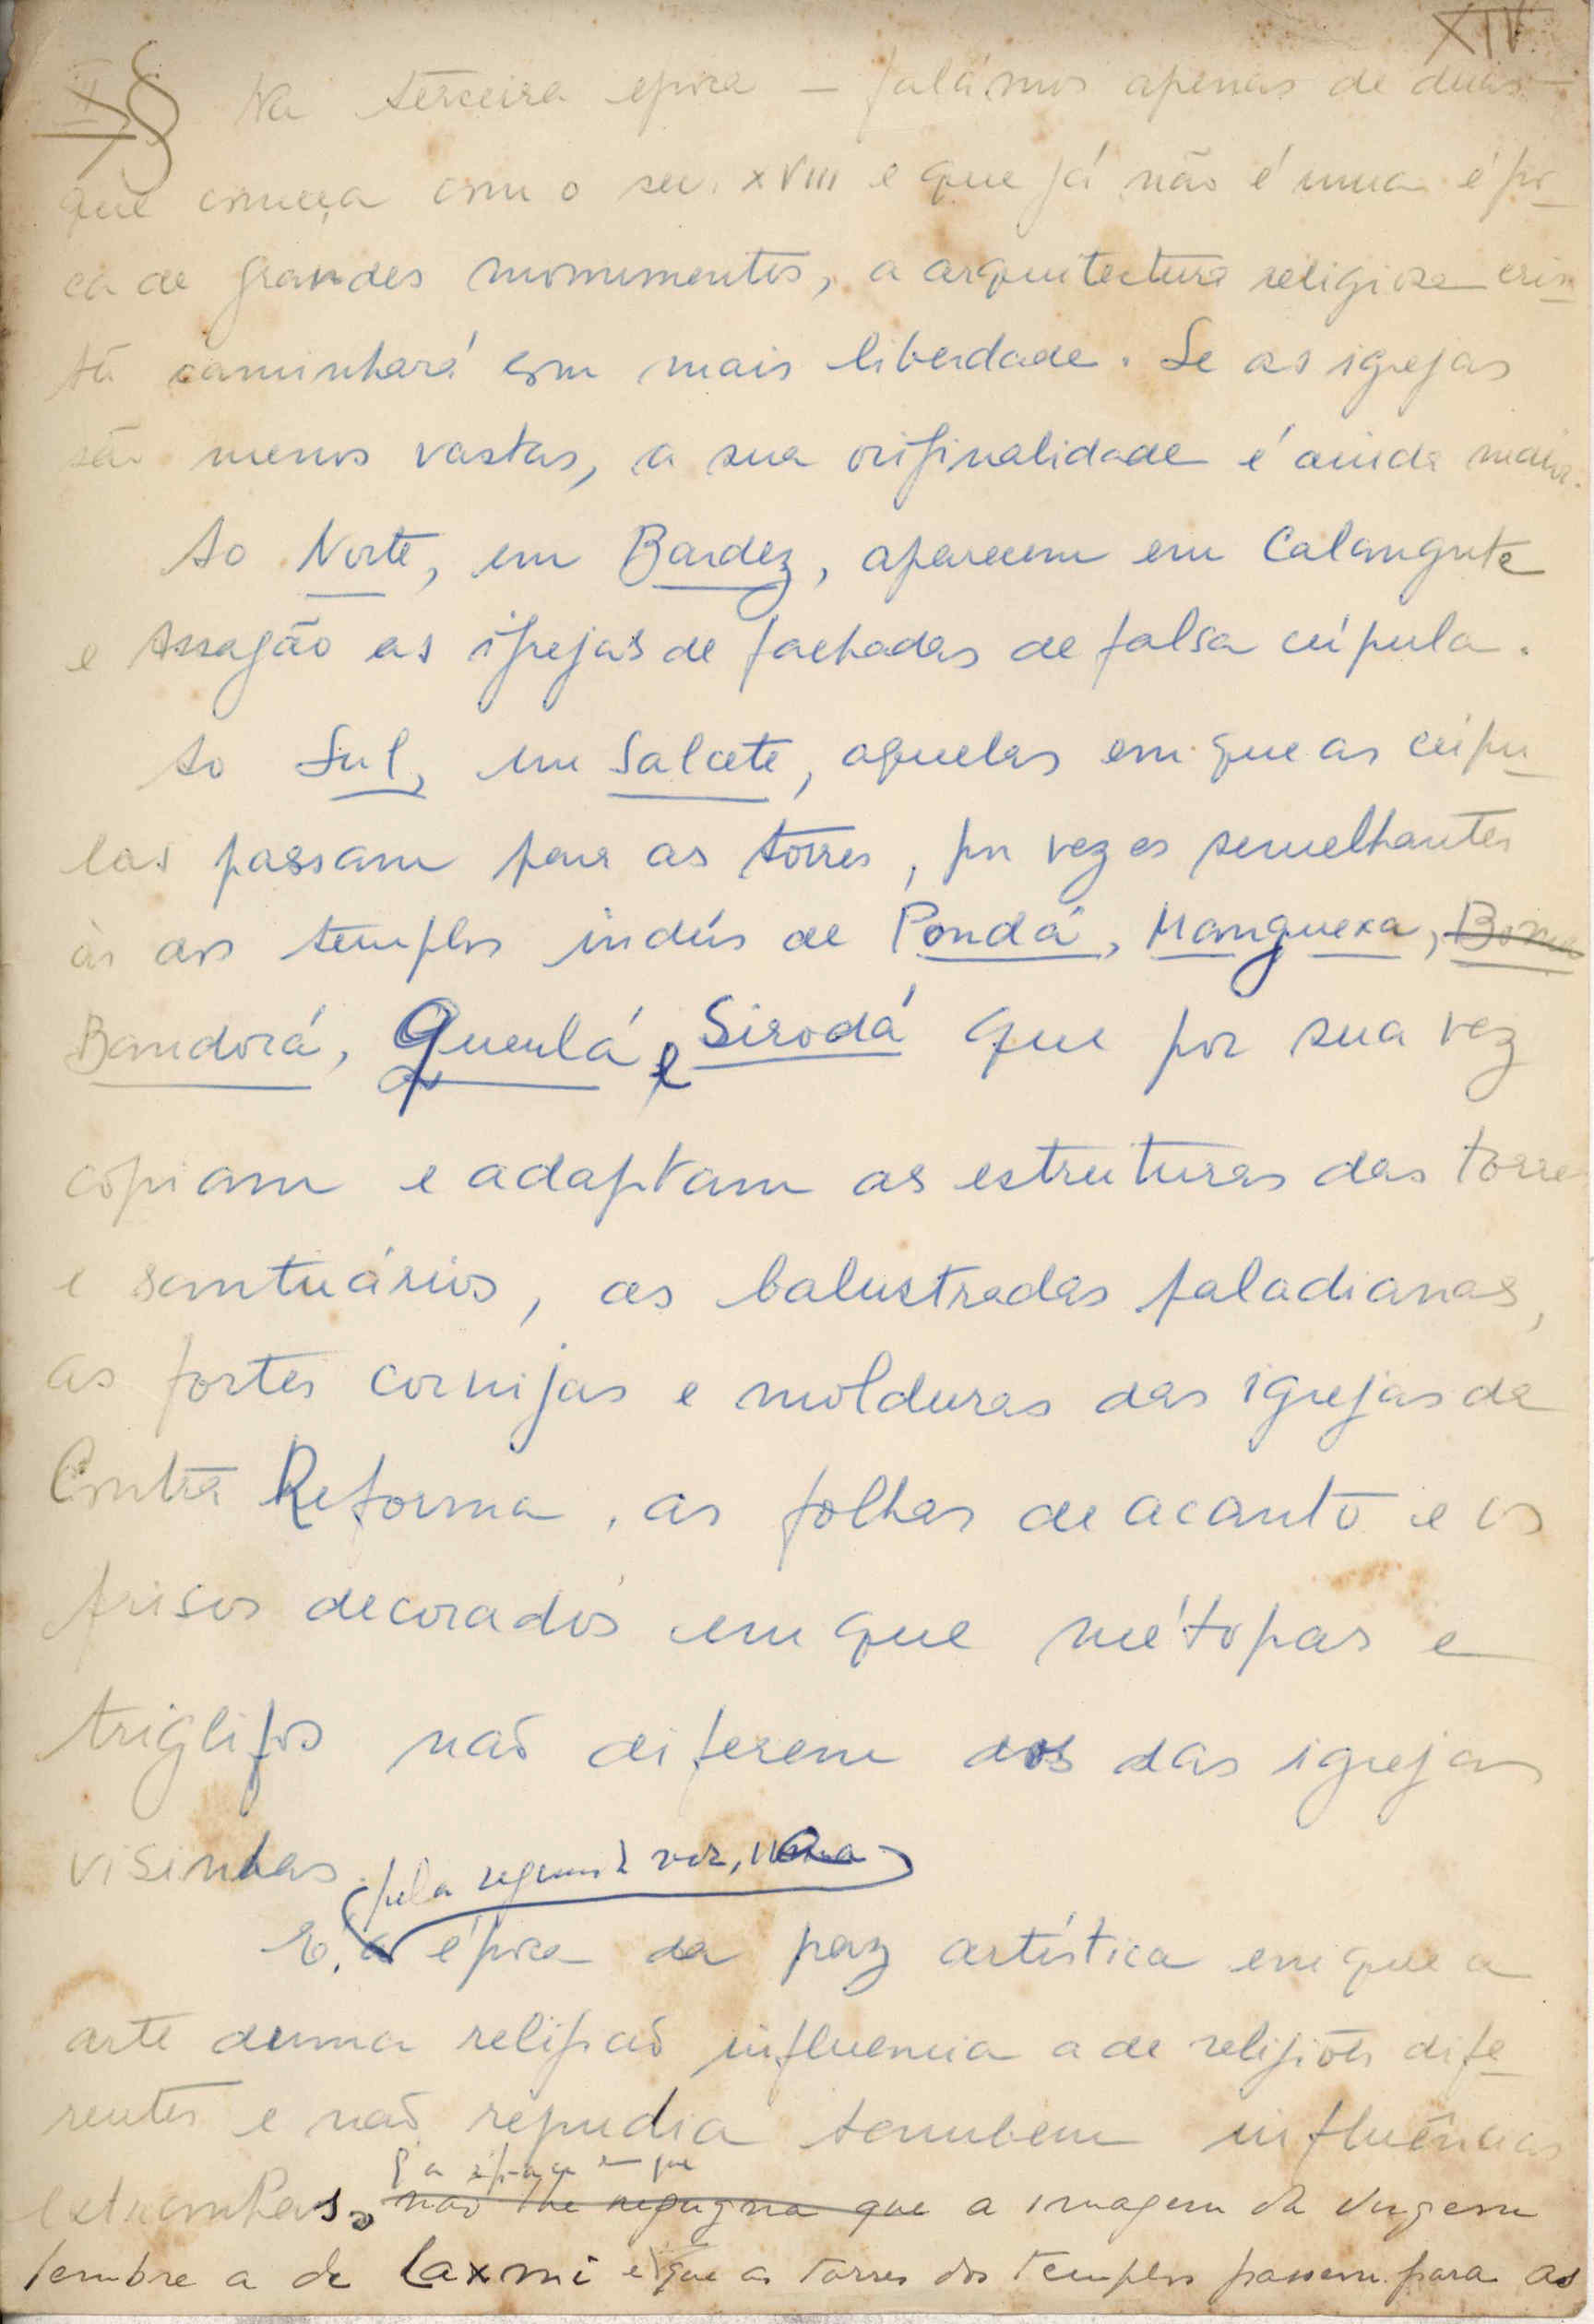 XIV
§ Na terceira época – falámos apenas de duas –
que começa com o sec. XVIII e que já não é uma épo
ca de grandes monumentos, a arquitectura religiosa cris
tã caminhará com mais liberdade. Se as igrejas
são menos vastas, a sua originalidade é ainda maior.
Ao Norte, em Bardez, aparecem em Calangute
e Assagão as igrejas de fachadas de falsa cúpula.
Ao Sul, em Salcete, aquelas em que as cúpu
las passam para as torres, por vezes semelhantes
às dos templos indús de Pondá, Manguexa,
Bandorá, Queulá e Sirodá que por sua vez
copiam e adaptam as estruturas das torres
e santuários, as balustradas paladianas,
as fortes cornijas e molduras das igrejas da
Contra Reforma, as folhas de acanto e os
frisos decorados em que métopas e
triglifos não diferem dos das igrejas
visinhas.
pela segunda vez,
É, a época da paz artística em que a
arte duma religião influencia a de religiões dife
rentes e não repudia tambem influências
É a época em que
extranhas. não lhe repugna que a imagem da Virgem
lembre a de Laxmi e que as torres dos templos passem para as